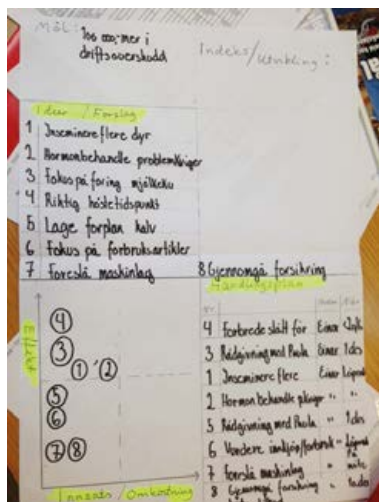 Mål: 100 000,- mer i
driftsoverskudd
Indeks/utvikling:
Ideer / Forslag
1 Inseminere flere dyr
2 Hormonbehandle problemkviger
3 Fokus på foring mjølkeku
4 Riktig høstetidspunkt
5 Lage forplan kalv
6 Fokus på forbruksartikler
7 Foreslå maskinlag
8 Gjennomgå forsikring
Handlingsplan
Effekt
4
3
1 2
5
6
7 8
Innsats / Omkostning
Nr
4 Forbrede slått før Einar
3 Rådgivning med Paula Einar 1 des
1 Inseminere flere Einar Løpende
2 Hormon behandle " "
5 Rådgivning med Paula " 1 des
6 Vurdere innkjøp/forbruk " Løpende
7 Foreslå maskinlag "
8 Gjennomgå forsikring "